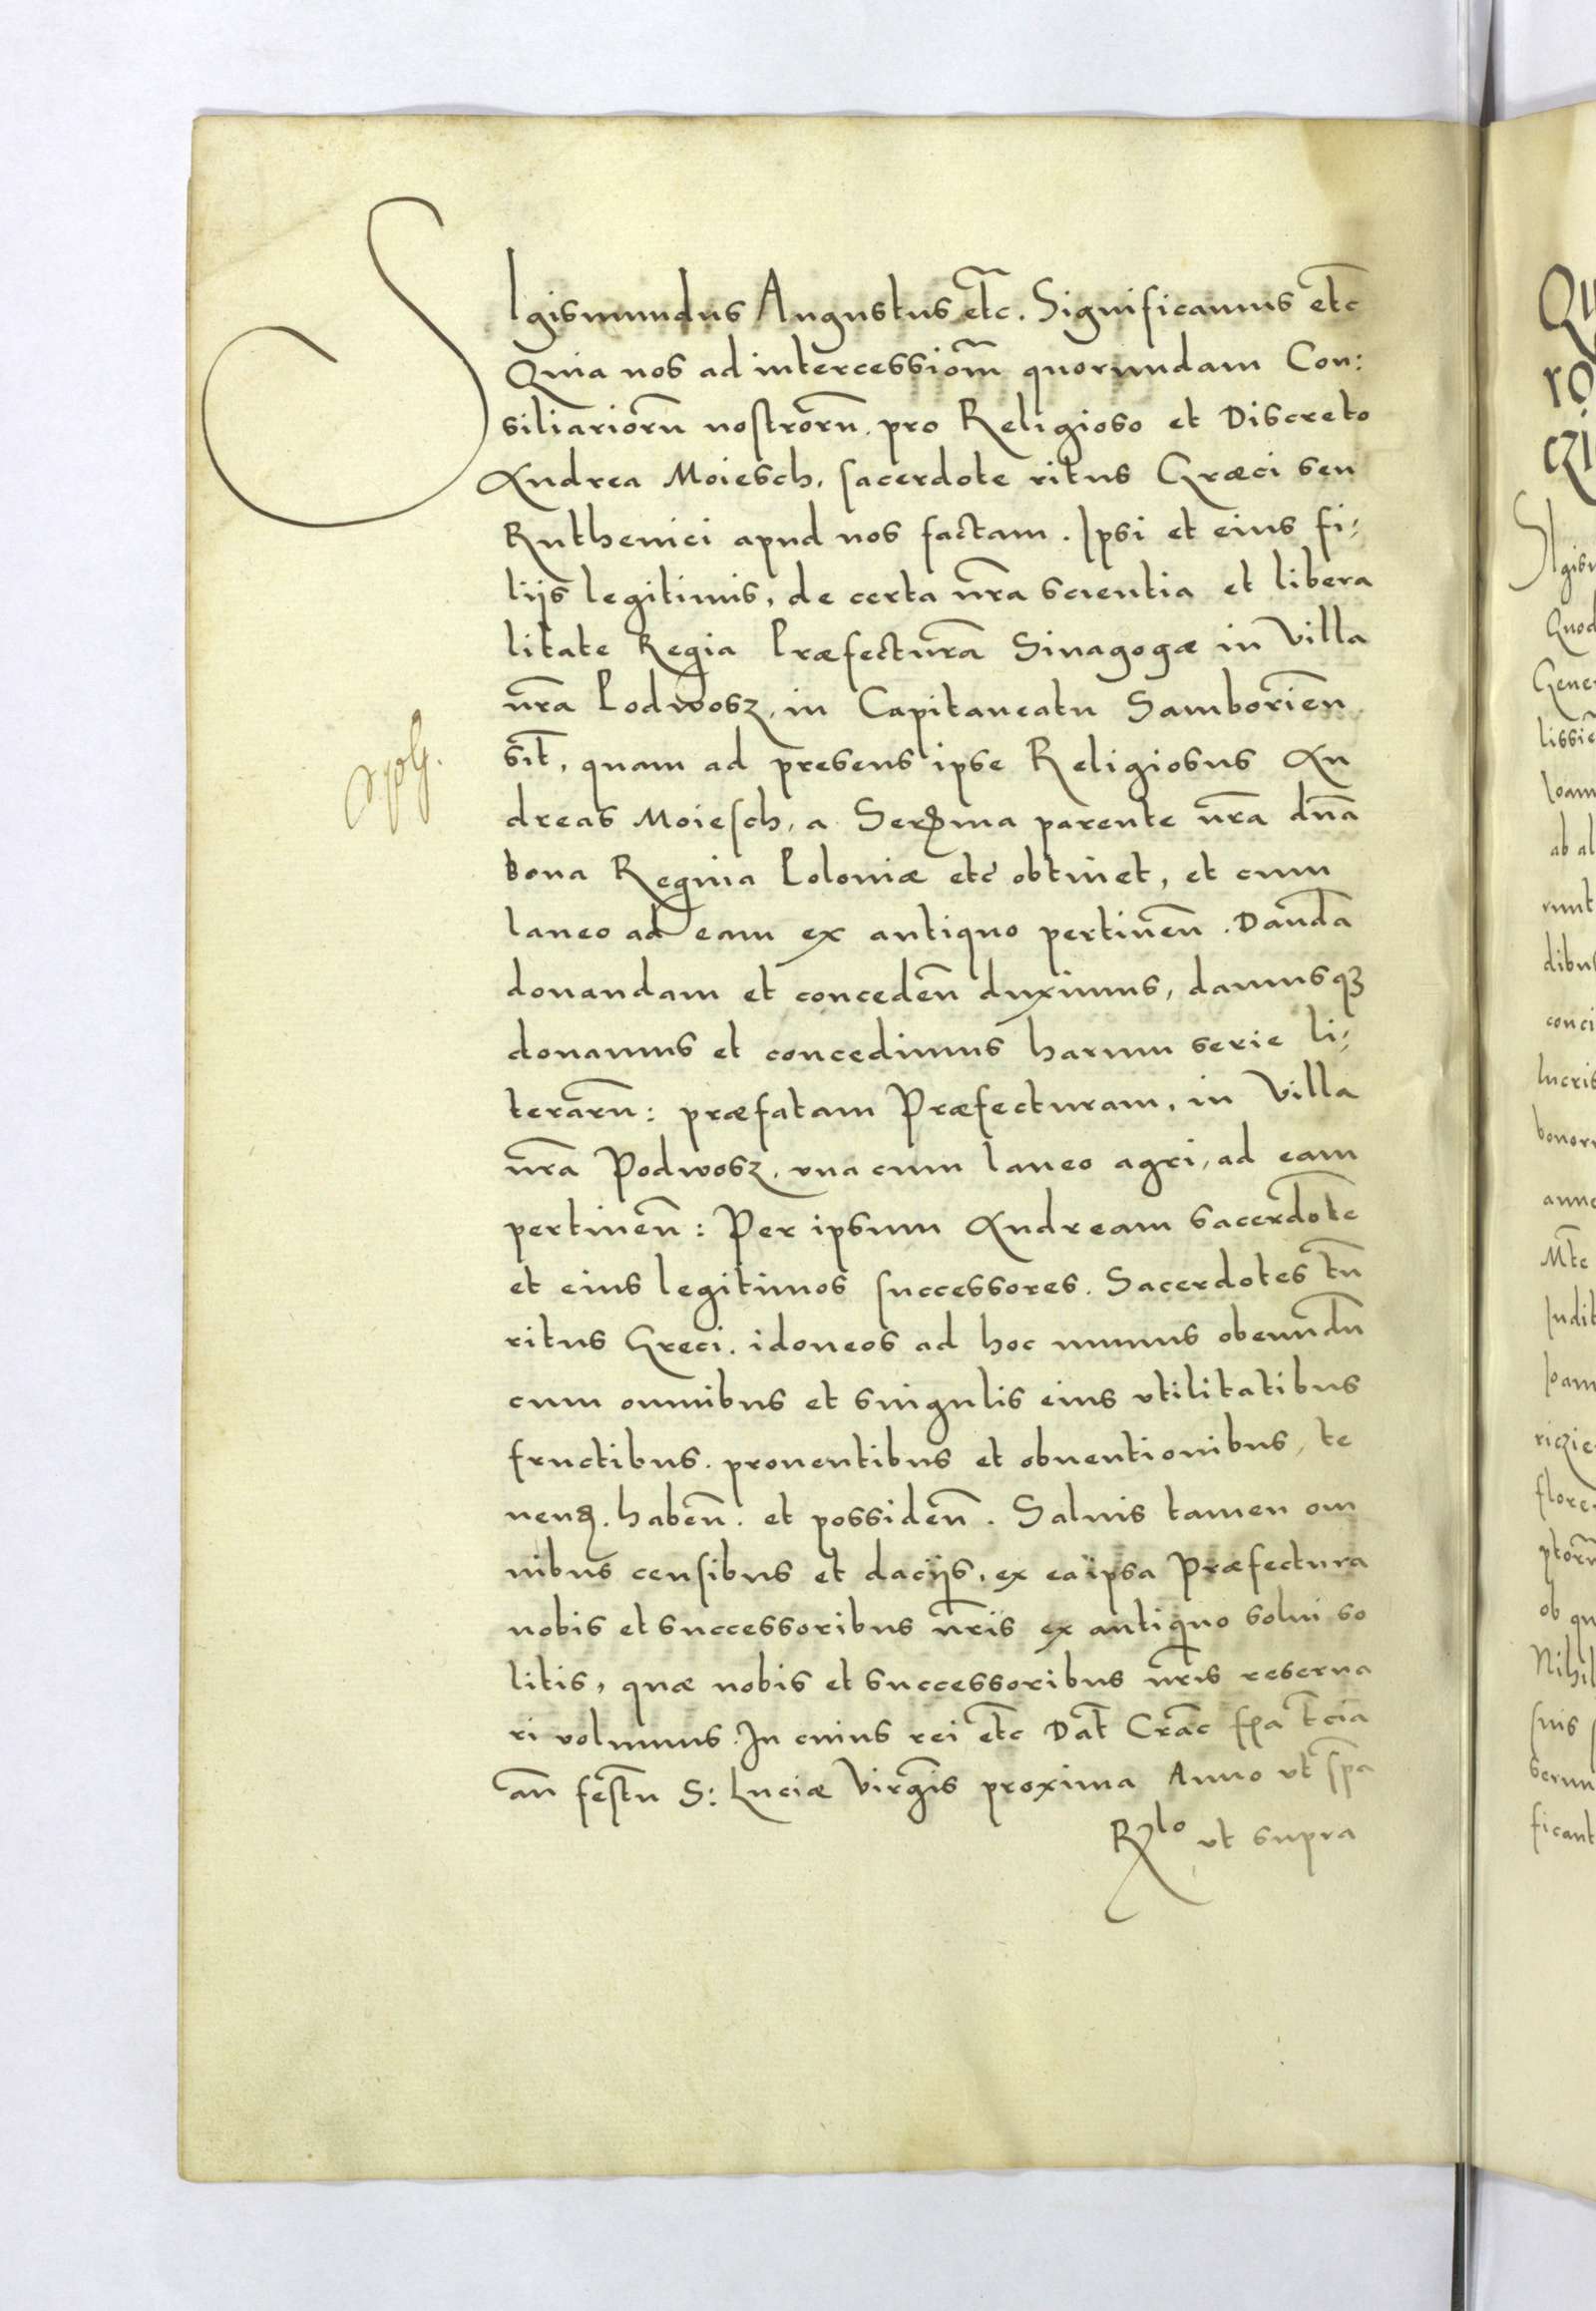 SIgismundus Augustus etc. Significamus etc
Quia nos ad intercessiom̄ quorumdam Con:
siliariorū nostrorū. pro Religioso et Discreto
Andrea Moiesch, sacerdote ritus Græci seu
Ruthenici apud nos factam. Ipsi et eius fi⸗
liis legitimis, de certa nr̄a scientia et libera
litate Regia Præfecturā Sinagogæ in Villa
nr̄a Podwosz, in Capitaneatu Samborien̄
sit̄, quam ad presens ipse Religiosus An
dreas Moiesch, a Serma parente nr̄a dn̄a
Bona Regina Poloniæ etc obtinet, et cum
laneo ad eam ex antiquo pertinen̄. Dandā
donandam et conceden̄ duximus, damusqꝫ
donamus et concedimus harum serie li⸗
terarū: præfatam Præfecturam, in Villa
nr̄a Podwosz, vna cum laneo agri, ad eam
pertinen̄: Per ipsum Andream sacerdotē
et eius legitimos successores. Sacerdotes tn̄
ritus Greci. idoneos ad hoc munus obeundū
cum omnibus et singulis eius vtilitatibus
fructibus. prouentibus et obuentionibus, te
nen̄. haben̄. et possiden̄. Saluis tamen om
nibus censibus et daciis, ex ea ipsa Præfectura
nobis et successoribus nr̄is ex antiquo solui so
litis, quæ nobis et successoribus nr̄is reserua
ri volumus. In cuius rei etc Dat̄ Crac̄ fr̄a t̄cia
an̄ festū S: Luciæ Virgīs proxima Anno vt sp̄a
Rlo vt supra